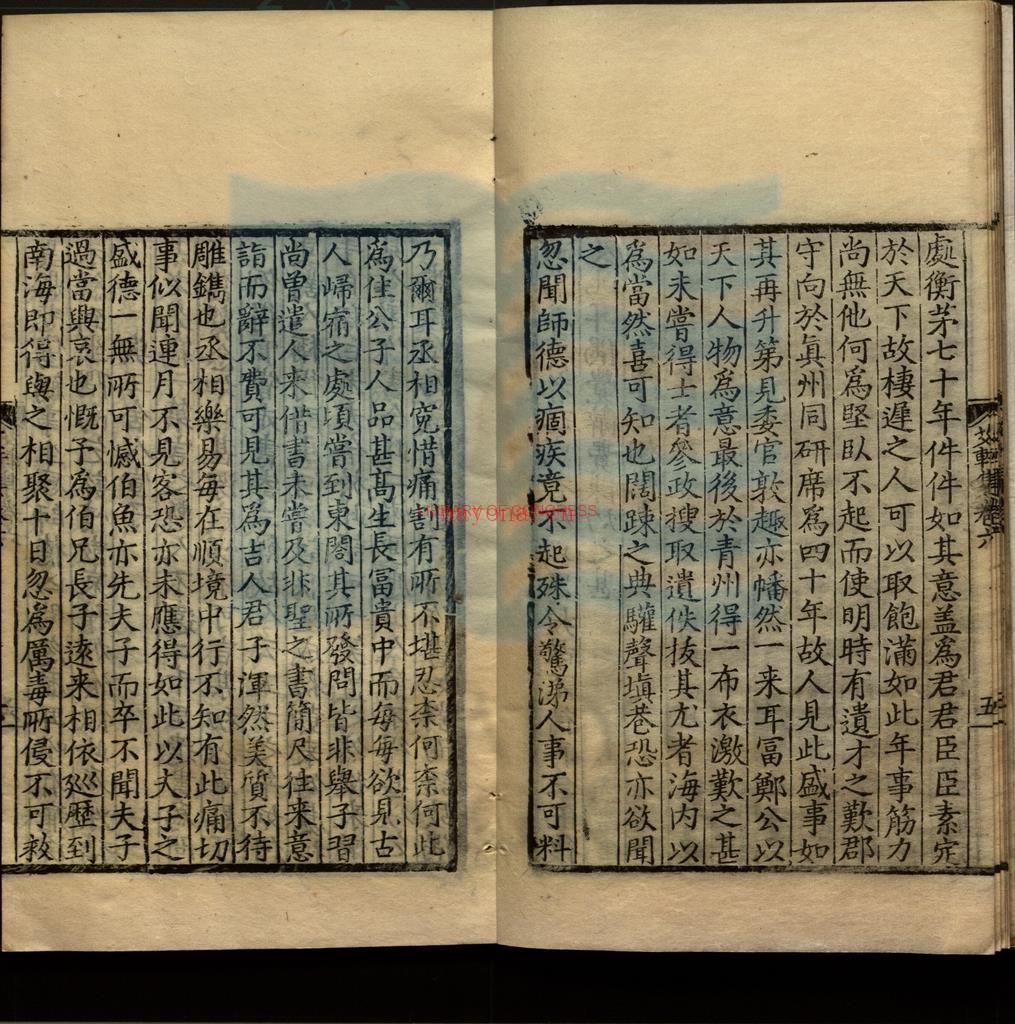 處衡茅七十年件件如其意盖為君君臣臣素定
於天下故棲遲之人可以取飽滿如此年事筋力
尚無他何為堅臥不起而使明時有遺才之歎郡
守向於眞州同研席為四十年故人見此盛事如
其再升第見委官敦趣亦幡然一来耳冨鄭公以
天下人物為意最後於青州得一布衣激歎之甚
如未嘗得士者參政搜取遺佚抜其尤者海内以
為當然喜可知也闊踈之典驩聲塡巷恐亦欲聞
之
忽聞師德以痼疾竟不起殊令驚涕人事不可料
艾軒集卷六
五
乃爾耳丞相寃惜痛割有所不堪忍柰何柰何此
為佳公子人品甚髙生長冨貴中而每每欲見古
人歸宿之處頃嘗到東閤其所發問皆非舉子習
尚曾遣人来借書未嘗及非聖之書簡尺往来意
詣而辭不費可見其為吉人君子渾然美質不待
雕鐫也丞相樂易每在順境中行不知有此痛切
事似聞連月不見客恐亦未應得如此以大子之
盛德一無所可憾伯魚亦先夫子而卒不聞夫子
過當興哀也慨予為伯兄長子逺来相依廵歴到
南海即得與之相聚十日忽為厲毒所侵不可救